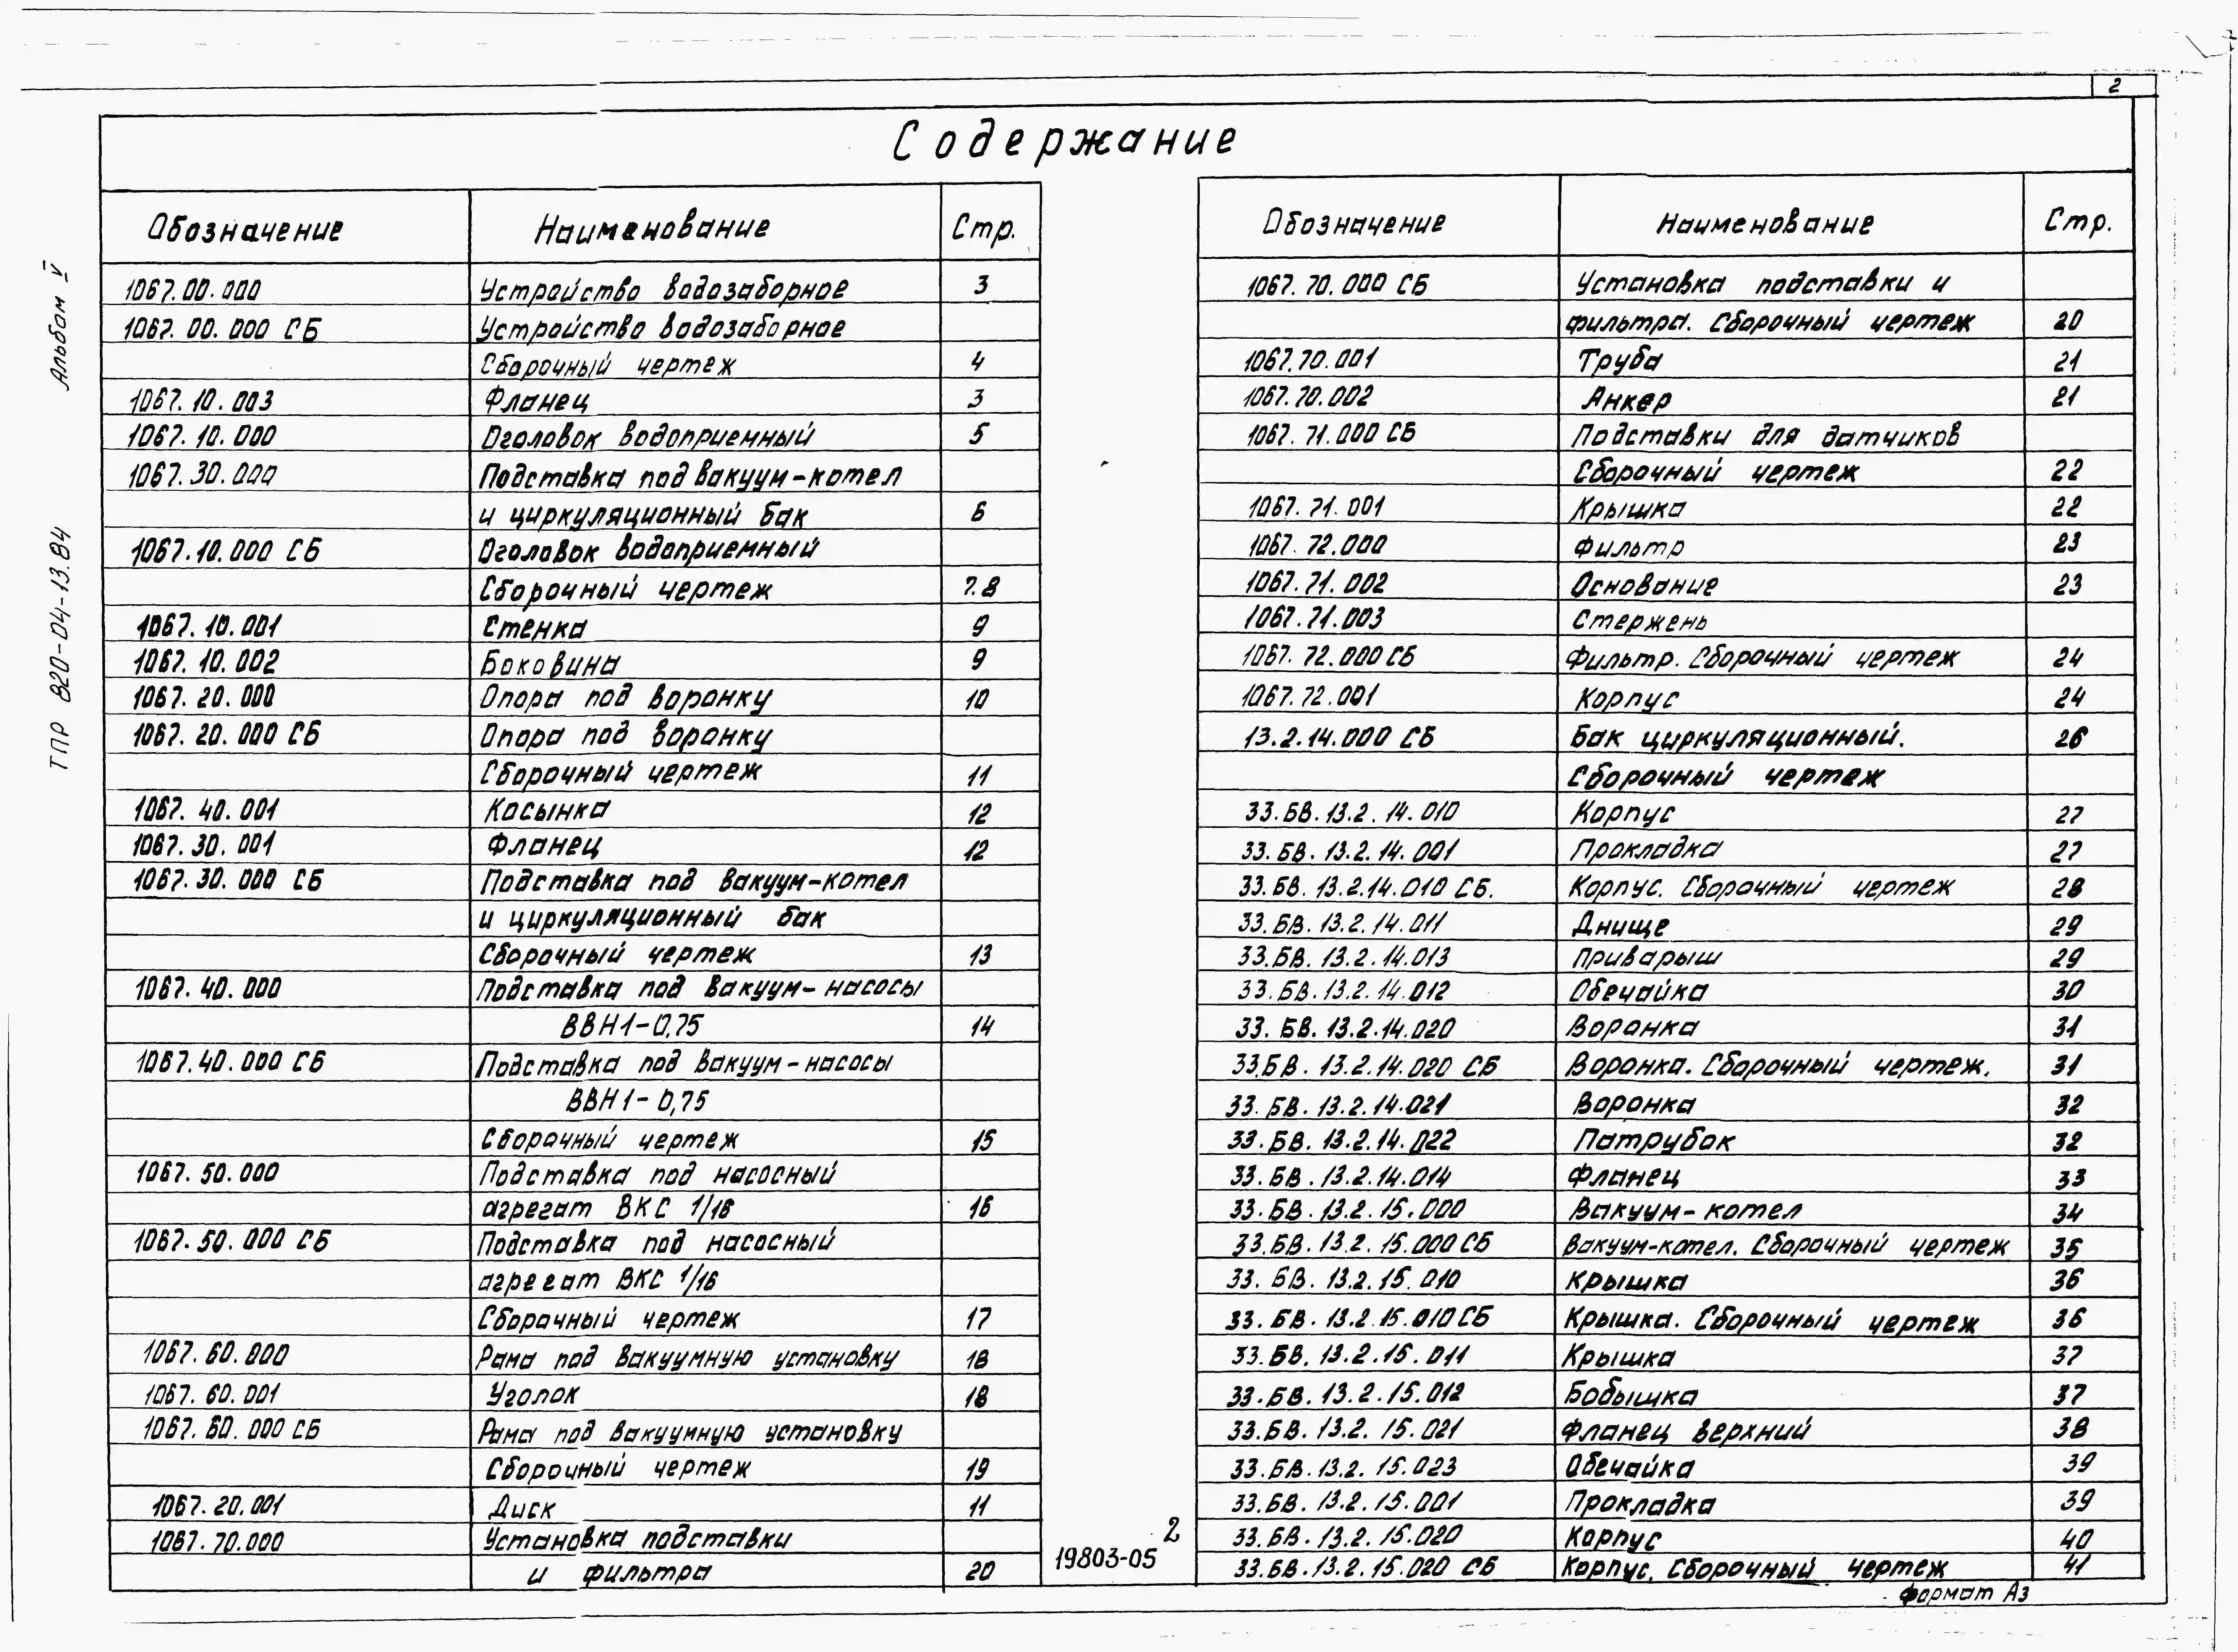 2
Содержание
Альбом V
ТПР 820-04-13.84
Обозначение Наименование Стр.
1067.00.000 Устройство водозаборное 3
1067.00.000 СБ Устройство водозаборное
Сборочный чертеж 4
1067.10.003 Фланец 3
1067.10.000 Оголовок водоприемный 5
1067.30.000 Подставка под вакуум-котел
и циркуляционный бак 6
1067.10.000 СБ Оголовок водоприемный
Сборочный чертеж 7.8
1067.10.001 Стенка 9
1067.10.002 Боковина 9
1067.20.000 Опора под воронку 10
1067.20.000 СБ Опора под воронку
Сборочный чертеж 11
1067.40.001 Косынка 12
1067.30.001 Фланец 12
1067.30.000 СБ Подставка под вакуум-котел
и циркуляционный бак
Сборочный чертеж 13
1067.40.000 Подставка под вакуум-насосы
ВВН1-0,75 14
1067.40.000 СБ Подставка под вакуум-насосы
ВВН1-0,75
Сборочный чертеж 15
1067.50.000 Подставка под насосный
агрегат ВКС 1/16 16
1067.50.000 СБ Подставка под насосный
агрегат ВКС 1/16
Сборочный чертеж 17
1067.60.000 Рама под вакуумную установку 18
1067.60.001 Уголок 18
1067.60.000 СБ Рама под вакуумную установку
Сборочный чертеж 19
1067.20.001 Диск 11
1067.70.000 Установка подставки
и фильтра 20
Обозначение Наименование Стр.
1067.70.000 СБ Установка подставки и
фильтра. Сборочный чертеж 20
1067.70.001 Труба 21
1067.70.002 Анкер 21
1067.71.000 СБ Подставки для датчиков
Сборочный чертеж 22
1067.71.001 Крышка 22
1067.72.000 Фильтр 23
1067.71.002 Основание 23
1067.71.003 Стержень
1067.72.000 СБ Фильтр. Сборочный чертеж 24
1067.72.001 Корпус 24
13.2.14.000 СБ Бак циркуляционный. 26
Сборочный чертеж
33.БВ.13.2.14.010 Корпус 27
33.БВ.13.2.14.001 Прокладка 27
33.БВ.13.2.14.010 СБ. Корпус. Сборочный чертеж 28
33.БВ.13.2.14.011 Днище 29
33.БВ.13.2.14.013 Приварыш 29
33.БВ.13.2.14.012 Обечайка 30
33.БВ.13.2.14.020 Воронка 31
33.БВ.13.2.14.020 СБ Воронка. Сборочный чертеж. 31
33.БВ.13.2.14.021 Воронка 32
33.БВ.13.2.14.022 Патрубок 32
33.БВ.13.2.14.014 Фланец 33
33.БВ.13.2.15.000 Вакуум-котел 34
33.БВ.13.2.15.000 СБ Вакуум-котел. Сборочный чертеж 35
33.БВ.13.2.15.010 Крышка 36
33.БВ.13.2.15.010 СБ Крышка. Сборочный чертеж 36
33.БВ.13.2.15.011 Крышка 37
33.БВ.13.2.15.012 Бобышка 37
33.БВ.13.2.15.021 Фланец верхний 38
33.БВ.13.2.15.023 Обечайка 39
33.БВ.13.2.15.001 Прокладка 39
33.БВ.13.2.15.020 Корпус 40
33.БВ.13.2.15.020 СБ Корпус. Сборочный чертеж 41
2
19803-05
Формат А3